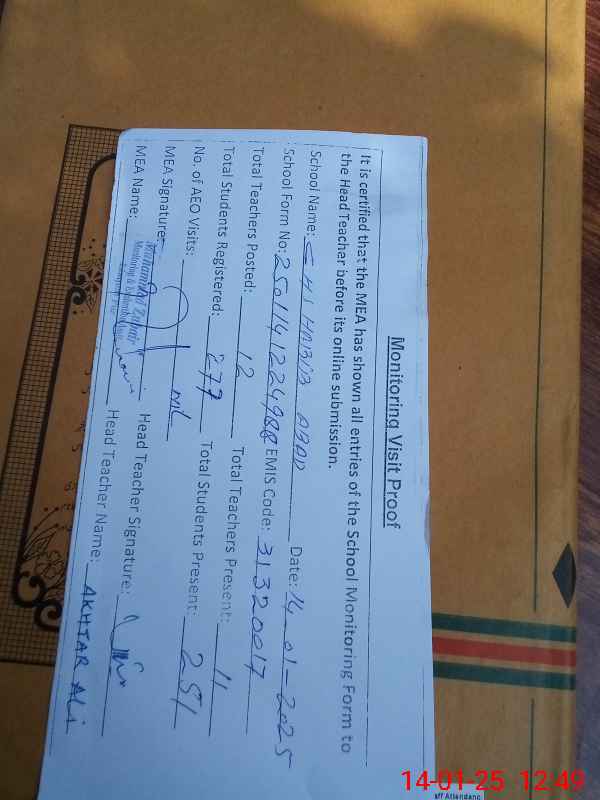 Monitoring Visit Proof
It is certified that the MEA has shown all entries of the School Monitoring Form to
the Head Teacher before its online submission.
School Name: GHS HABIB ABAD Date: 14-01-2025
School Form No: 2501141224988 EMIS Code: 31320017
Total Teachers Posted: 12 Total Teachers Present: 11
Total Students Registered: 277 Total Students Present: 251
No. of AEO Visits: nil
MEA Signature: Head Teacher Signature:
MEA Name: Muhammad Zubair Head Teacher Name: AKHTAR ALi
Monitoring &
14-01-25 12:49
aff Attendanc